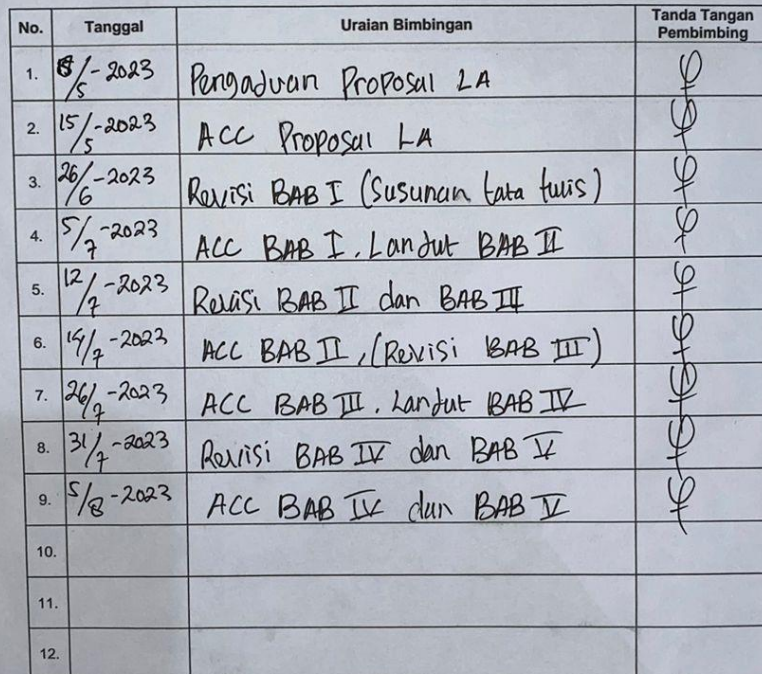 No. Tanggal Uraian Bimbingan Tanda Tangan Pembimbing
1. 8/5-2023 Pengaduan Proposal LA
2. 15/5-2023 ACC Proposal LA
3. 26/6-2023 Revisi BAB I (Susunan tata tulis)
4. 5/7-2023 ACC BAB I. Landut BAB II
5. 12/7-2023 Revisi BAB II dan BAB III
6. 19/7-2023 ACC BAB II, (Revisi BAB III)
7. 26/7-2023 ACC BAB III. Landut BAB IV
8. 31/7-2023 Revisi BAB IV dan BAB V
9. 5/8-2023 ACC BAB IV dan BAB V
10.
11.
12.